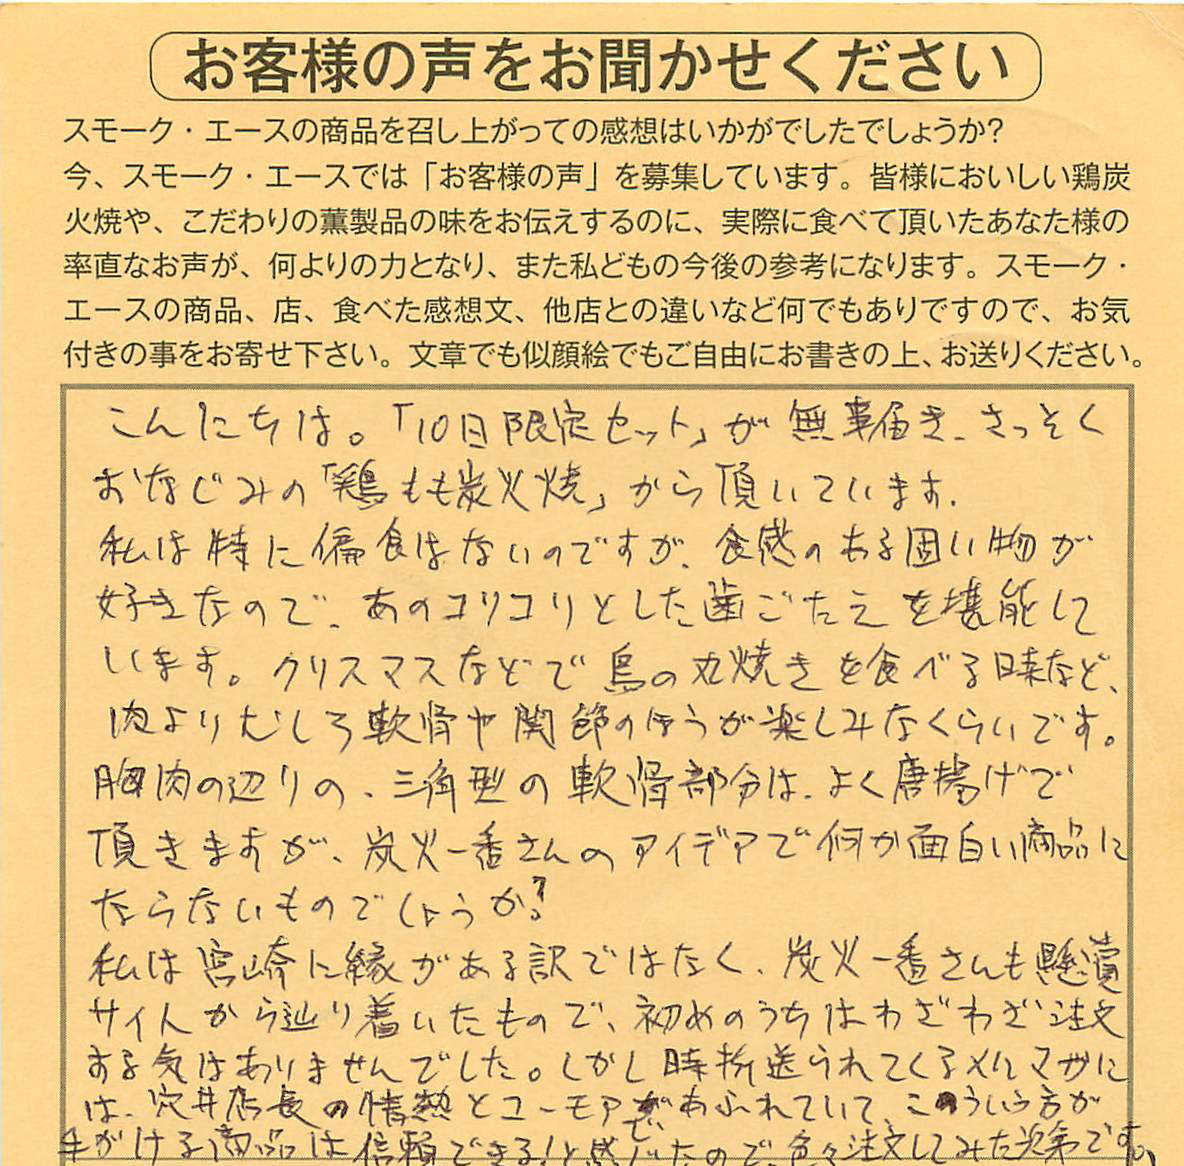 お客様の声をお聞かせください
スモーク・エースの商品を召し上がっての感想はいかがでしたでしょうか?
今、スモーク・エースでは「お客様の声」を募集しています。皆様においしい鶏炭
火焼や、こだわりの薫製品の味をお伝えするのに、実際に食べて頂いたあなた様の
率直なお声が、何よりの力となり、また私どもの今後の参考になります。スモーク・
エースの商品、店、食べた感想文、他店との違いなど何でもありですので、お気
付きの事をお寄せ下さい。文章でも似顔絵でもご自由にお書きの上、お送りください。
こんにちは。「10日限定セット」が無事届き、さっそく
おなじみの「鶏もも炭火焼」から頂いています。
私は特に偏食はないのですが、食感のある固い物が
好きなので、あのコリコリとした歯ごたえを堪能して
います。クリスマスなどで鳥の丸焼きを食べる時など、
肉よりむしろ軟骨や関節のほうが楽しみなくらいです。
胸肉の辺りの、三角型の軟骨部分は、よく唐揚げで
頂きますが、炭火一番さんのアイデアで何か面白い商品に
ならないものでしょうか?
私は宮崎に縁がある訳ではなく、炭火一番さんも懸賞
サイトから辿り着いたもので、初めのうちはわざわざ注文
する気はありませんでした。しかし時折送られてくるメルマガに
は、穴井店長の情熱とユーモアがあふれていて、このういう方が
手がける商品は信頼できる!と感じたので、色々注文してみた次第です。